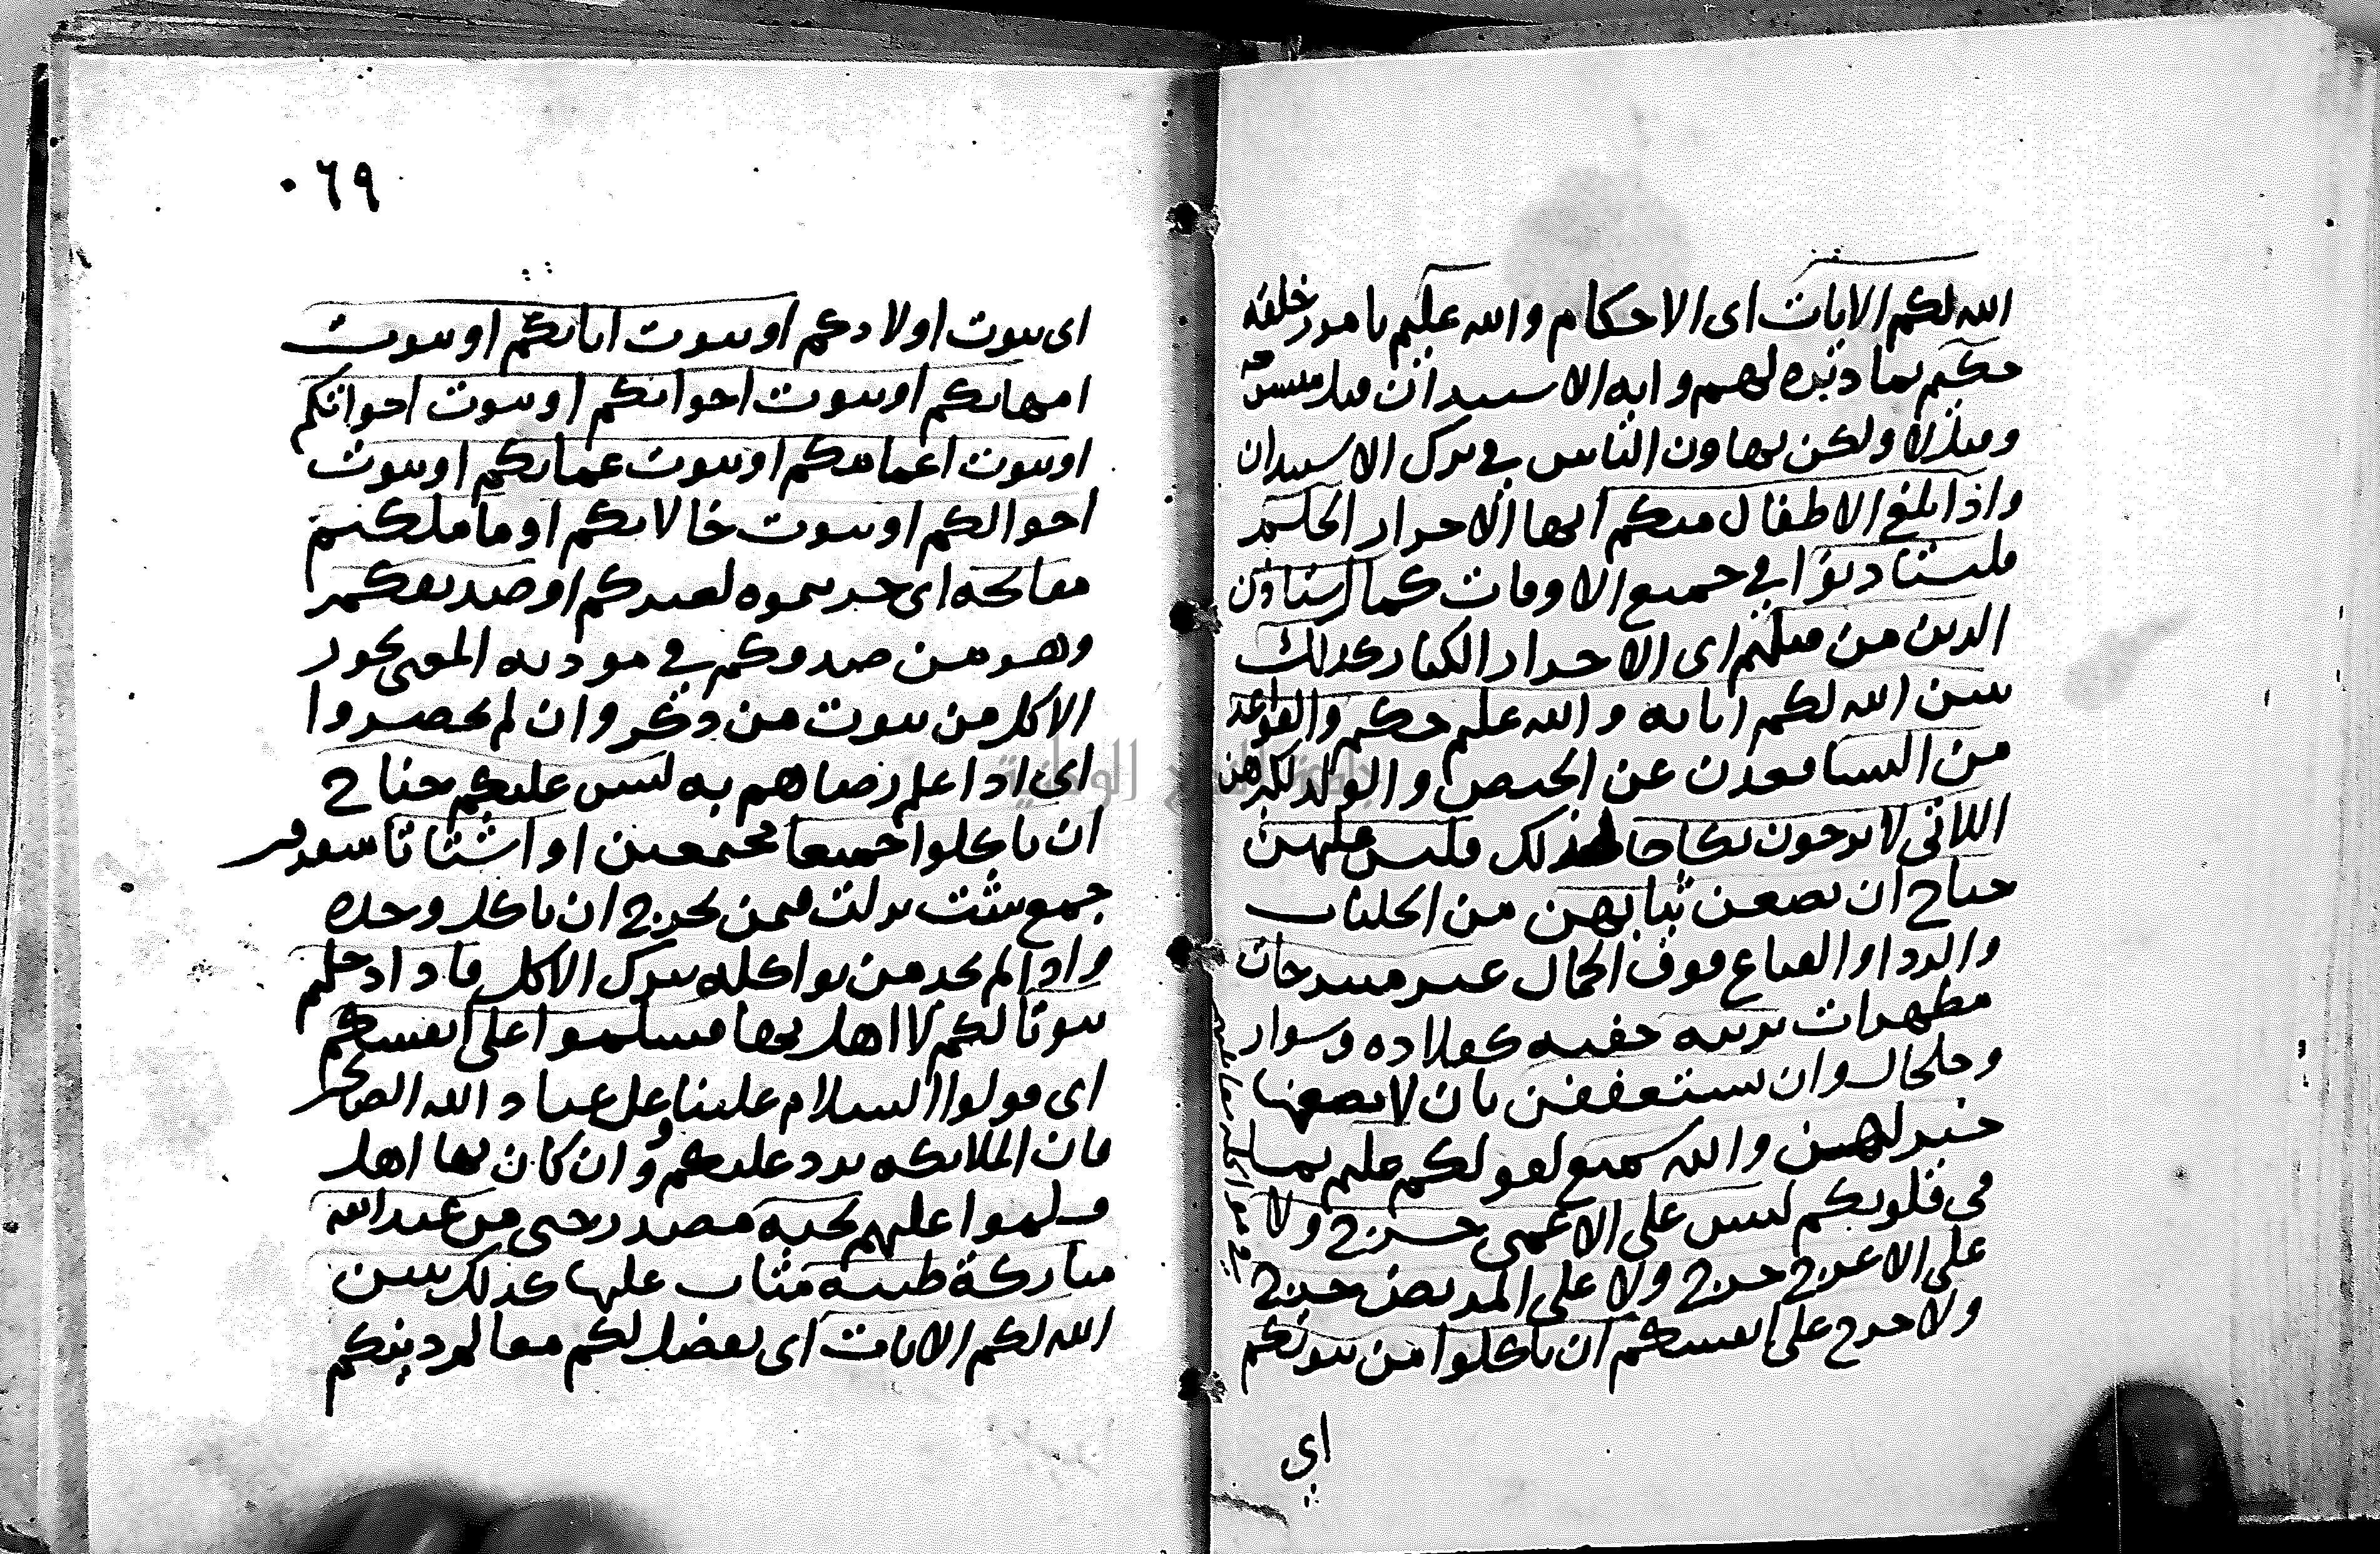 الله لكم الايات اى الاحكام والله عليم بامور خلقه
حكيم بما دبره لهم واية الاستيذان قيل منسوخة
وقيل لا ولكن تهاون الناس في ترك الاستيذان
واذا بلغ الاطفال منكم ايها الاحرار الحلم
فليستاذنوا في جميع الاوقات كما استاذن
الذين من قبلهم اى الاحرار الكبار كذلك
يبين الله لكم اياته والله عليم حكيم والقواعد
من النسا قعدن عن الحيض والولد لكبرهن
اللاتي لا يرجون نكاحا لذلك فليس عليهن
جناح ان يضعن ثيابهن من الجلباب
والردا والقناع فوق الخمار غير متبرجات
مظهرات بزينة خفية كقلادة وسوار
وخلخال وان يستعففن بان لا يضعنها
خير لهن والله سميع لقولكم عليم بما
في قلوبكم ليس على الاعمى حرج ولا
على الاعرج حرج ولا على المريض حرج
ولا حرج على انفسكم ان تاكلوا من بيوتكم
اي
٠٦٩
اى بيوت اولادكم او بيوت ابائكم او بيوت
امهاتكم او بيوت اخوانكم او بيوت اخواتكم
او بيوت اعمامكم او بيوت عماتكم او بيوت
اخوالكم او بيوت خالاتكم او ما ملكتم
مفاتحه اى خزنتموه لغيركم او صديقكم
وهو من صدقكم في مودته المعنى يجوز
الاكل من بيوت من ذكر وان لم يحضروا
اى اذا علم رضاهم به ليس عليكم جناح
ان تاكلوا جميعا مجتمعين او اشتاتا متفرقين
جمع شت نزلت فيمن تحرج ان ياكل وحده
واذا لم يجد من يواكله يترك الاكل فاذا دخلتم
بيوتا لكم لا اهل بها فسلموا على انفسكم
اى قولوا السلام علينا وعلى عباد الله الصالحين
فان الملائكة ترد عليكم وان كان بها اهل
فسلموا عليهم تحية مصدر حيى من عند الله
مباركة طيبة يثاب عليها كذلك يبين
الله لكم الايات اى يفصل لكم معالم دينكم